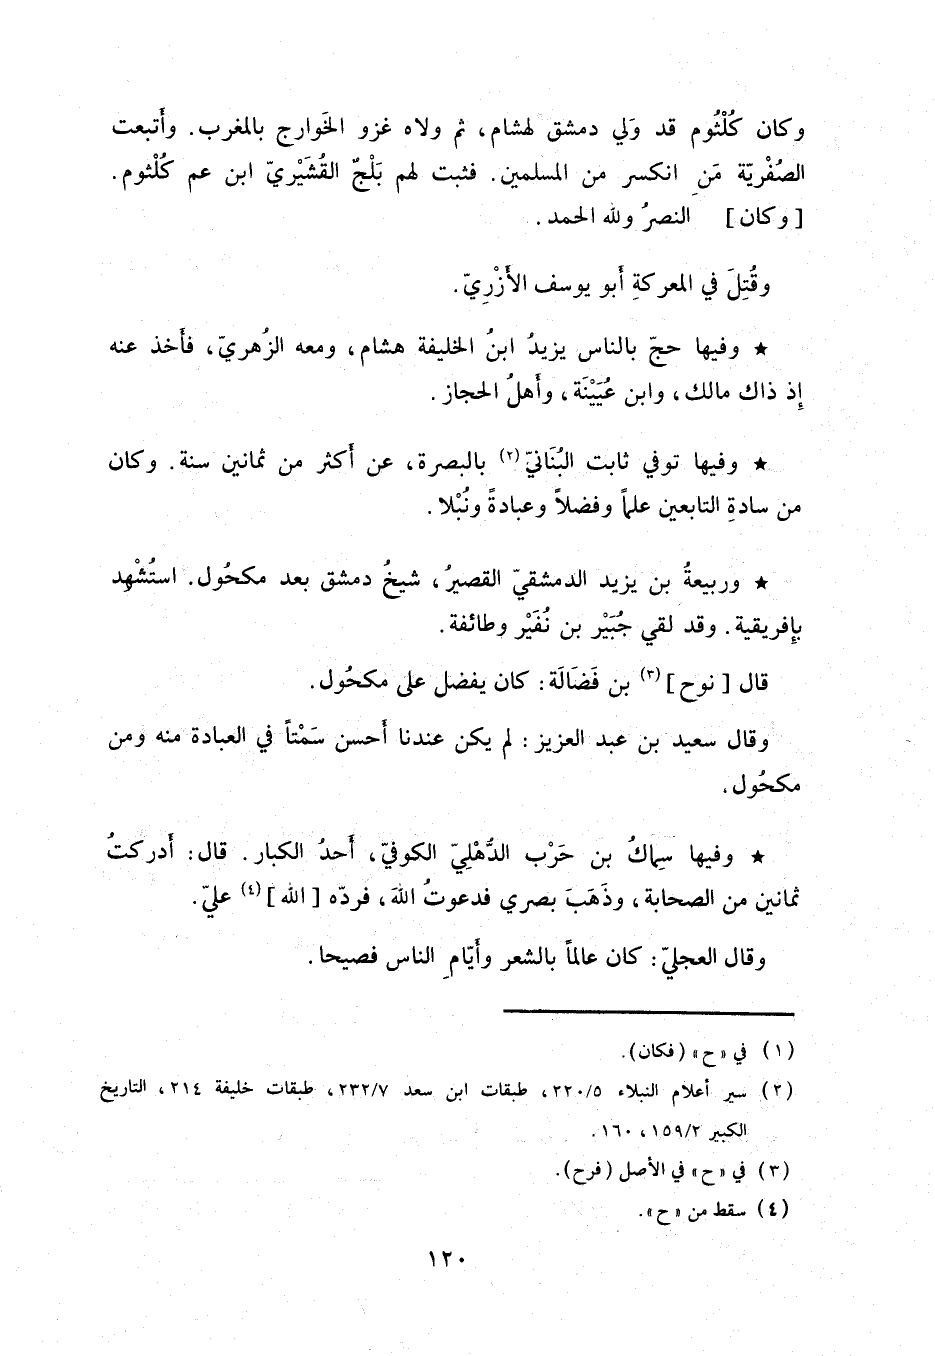 وكان كُلْثُوم قد وَلي دمشق لهشام، ثم ولاه غزو الخَوارج بالمغرب. وأَتبعت
الصُفْريّة مَنِ انكسر من المسلمين. فثبت لهم بَلْجٌ القُشَيْريّ ابن عم كُلْثوم.
[وكان] النصرُ ولله الحمد.
وقُتِلَ في المعركةِ أَبو يوسف الأَزْرِيّ.
★ وفيها حجّ بالناس يزيدُ ابنُ الخليفة هشام، ومعه الزُهريّ، فأَخذ عنه
إِذ ذاك مالك، وابن عُيَيْنَة، وأَهلُ الحجاز.
★ وفيها توفي ثابت البُنَانيّ(٢) بالبصرة، عن أَكثر من ثمانين سنة. وكان
من سادةِ التابعين علماً وفضلاً وعبادةً ونُبْلا.
★ وربيعةُ بن يزيد الدمشقيّ القصيرُ، شيخُ دمشق بعد مكحُول. استُشْهِد
بإِفريقية. وقد لقي جُبَيْر بن نُفَيْر وطائفة.
قال [نوح](٣) بن فَضَالَة: كان يفضل على مكحُول.
وقال سعيد بن عبد العزيز: لم يكن عندنا أَحسن سَمْتاً في العبادة منه ومن
مكحُول.
★ وفيها سِماكُ بن حَرْب الذُهْلِيّ الكوفيّ، أَحدُ الكبار. قال: أَدركتُ
ثمانين من الصحابة، وذَهَبَ بصري فدعوتُ اللهَ، فردّه [الله](٤) عليّ.
وقال العجليّ: كان عالماً بالشعر وأَيّامِ الناس فصيحا.
(١) في «ح» (فكان).
(٢) سير أعلام النبلاء ٢٢٠/٥، طبقات ابن سعد ٢٣٢/٧، طبقات خليفة ٢١٤، التاريخ
الكبير ١٥٩/٢، ١٦٠.
(٣) في «ح» في الأصل (فرح).
(٤) سقط من «ح».
١٢٠